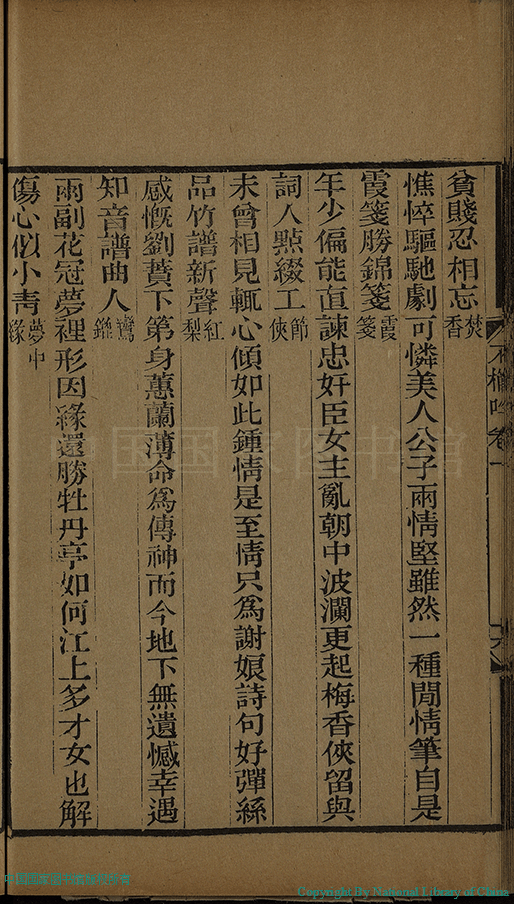 貧賤忍相忘焚香
憔悴驅馳劇可憐美人公子兩情堅雖然一種閒情筆自是
霞箋勝錦箋霞箋
年少偏能直諫忠奸臣女主亂朝中波瀾更起梅香俠留與
詞人點綴工節俠
未曾相見輒心傾如此鍾情是至情只為謝娘詩句好彈絲
品竹譜新聲紅梨
感慨劉蕡下第身蕙蘭薄命為傳神而今地下無遺憾幸遇
知音譜曲人鸞鎞
兩副花冠夢裡形因緣還勝牡丹亭如何江上多才女也解
傷心似小青夢中緣
中国国家图书馆
Copyright By National Library of China